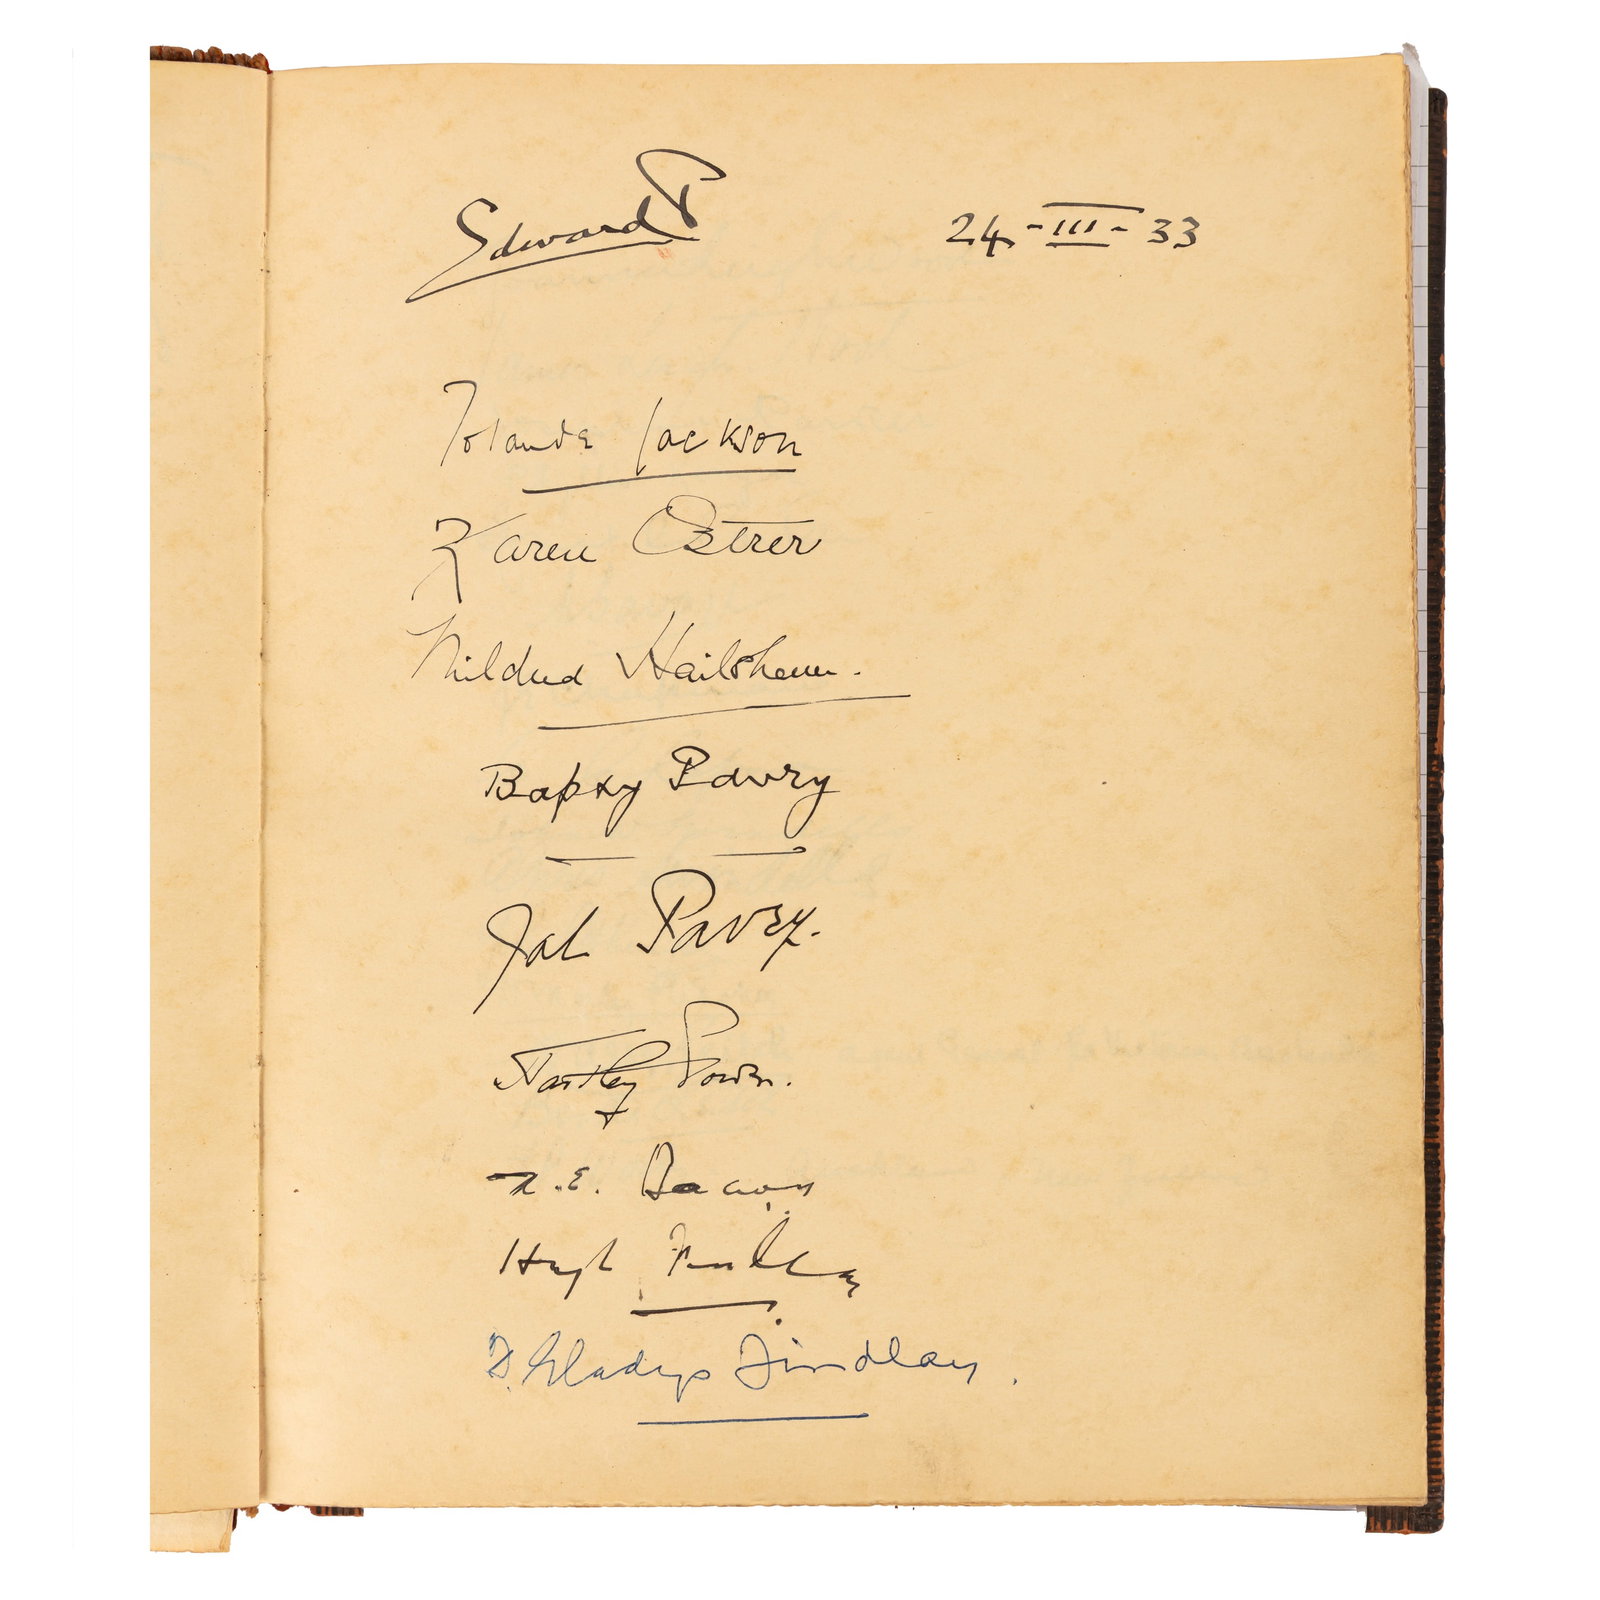 Edward P 24-III-33
Yolande Jackson
Karen Ostrer
Mildred Hailsham.
Bapsy Pavry
Jal Pavry.
Hartley
R.E. Bacon
Hugh Findlay
D. Gladys Findlay.